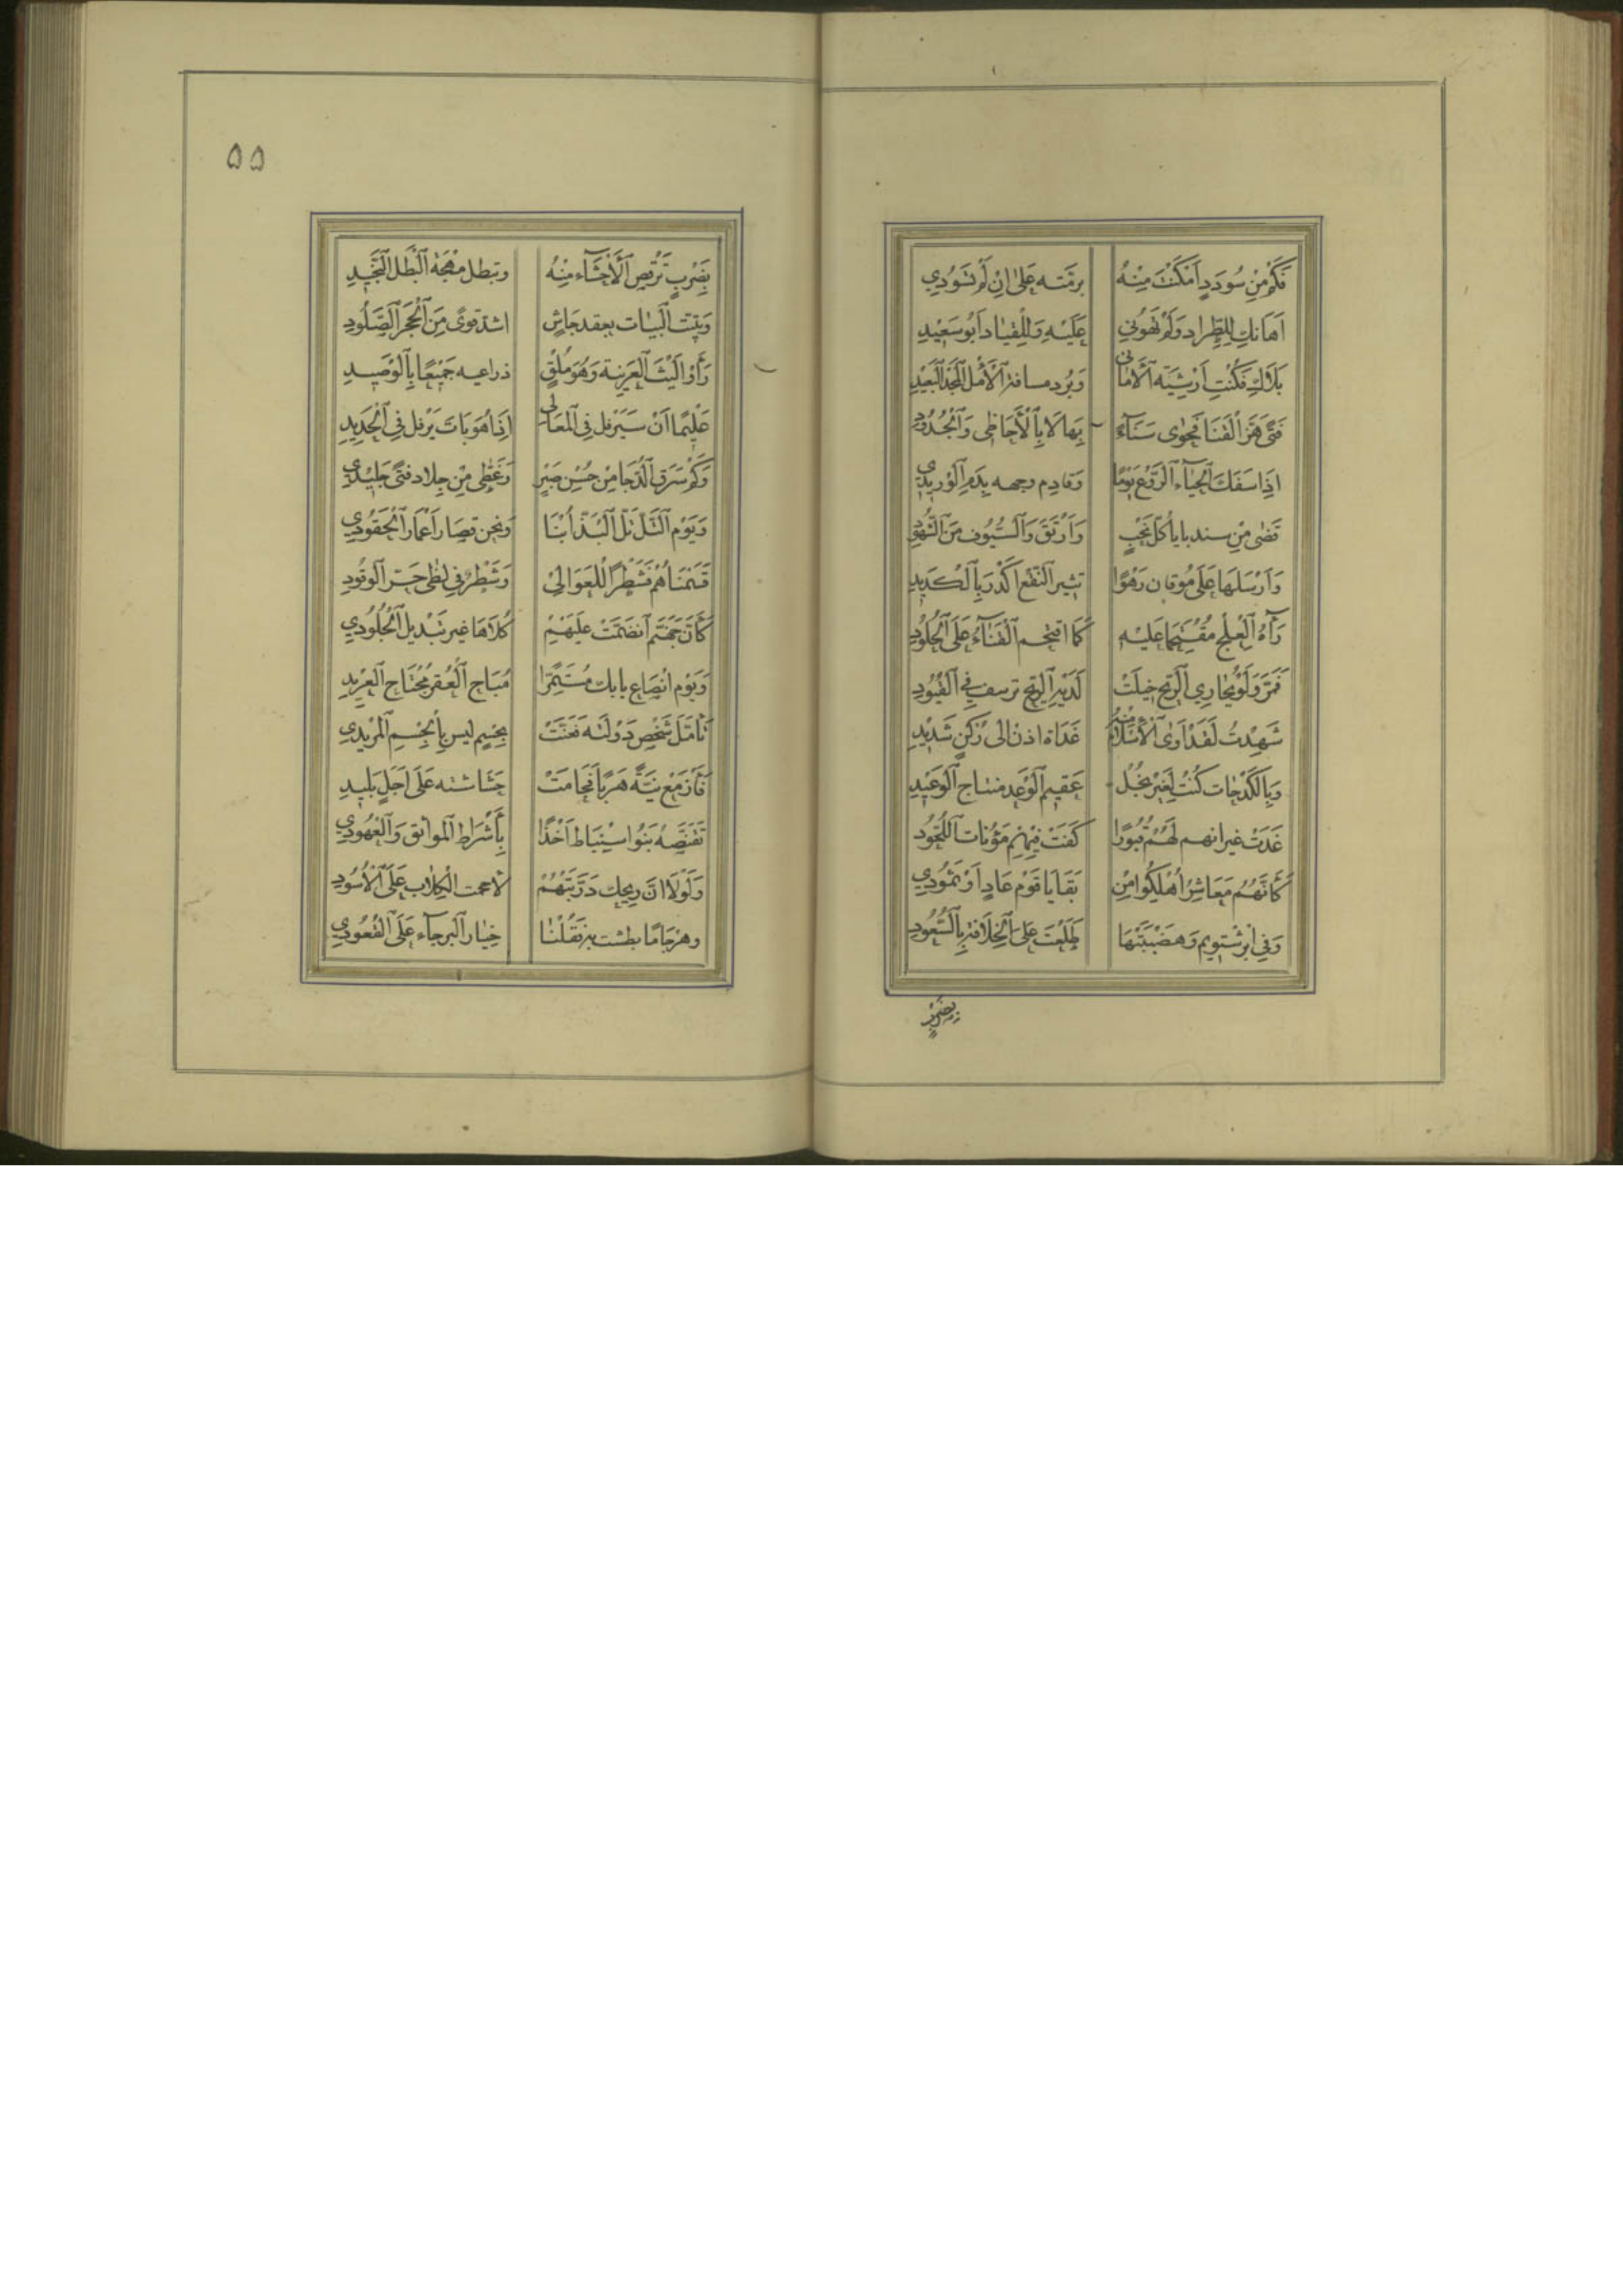 فَكَمْ مِنْ سُودَدٍ اَمْكَنْتَ مِنْهُ برمّته عَلىٰ اِنْ لَمْ تَسُودِي
اَهَانَكِ لِلطِّرادِ وَلَمْ تَهُونِي عَلَيْهِ وَلِلْقِيادِ اَبُو سَعِيْدٍ
بَلَاكِ فَكُنْتِ اَرْشِيَةَ الْاَمَانى وَبُرد مسافة الْاَمَل الْبَعِيْدِ
فَتىً هَزَّ الْقَنَا فَحَوٰى سَنَآءً بِهَا لَا بِالْاَحَاظِى وَالْجُدُودِ
اِذَا سَفَكَ الْحَيَآءَ الرَّوْعُ يَوْمًا وَقادِم وجهه بِدَمِ الْوَرِيْدِي
قَضٰى مِنْ سندبايا كُلّ نَحْبٍ وَاَرْشَقَ وَالسُّيُوف مِنَ الشُّهُودِ
وَاَرْسَلَهَا عَلٰى مُوقان رَهْوًا تثير النَّقْعَ اَكْدَرَ بِالْكَدِيدِ
رَآهُ الْعِلْجُ مُقْتَحِمًا عَلَيْهِ كَمَا اقتحم الْفَنَآءُ عَلَى الْخُلُودِ
فَمَرَّ وَلَوْ يُجَارِي الرِّيْحَ خِيلَتْ لَدَيْهِ الرِّيْح ترسف فِي الْقُيُودِ
شَهِدْتُ لَقَدْ اَوٰى الْاِسْلَامُ مِنْهُ غَدَاة اذٍ اِلٰى رُكْنٍ شَدِيْدِ
وَبِالْكَذَجَات كُنْتَ لِغَيْرِ بُخْلٍ عَقِيم الْوَعْد منتاج الْوَعِيْدِ
غَدَتْ غيرانهم لَهُمُ قُبُورًا كَفَتْ فِيْهِمْ مَؤُنَات اللُّحُودِ
كَاَنَّهُمُ مَعَاشِرُ اُهْلِكُوا مِنْ بَقَايَا قَوْمِ عَادٍ اَوْ ثَمُودِي
وَفِي اَبْرَشْتَوِيم وَهَضْبَتَيْهَا طَلَعْتَ عَلَى الْخِلَافَةِ بِالسُّعُودِ
بِضَرْبٍ
٥٥
بِضَرْبٍ تَرْقُصُ الْاَحْشَآءُ مِنْهُ وتبطل مُهْجَة الْبَطَلِ النَّجِيْدِ
وَبَيَّتَّ الْبَيَات بعقد جَاشٍ اشدّ قوىً مِنَ الْحَجَرِ الصَّلُودِ
رَأَوْا لَيْثَ الْعَرِينَةِ وَهُوَ مُلْقٍ ذراعيه جَمِيْعًا بِالْوَصِيدِ
عَلِيْمًا اَنْ سَيَرْفل فِي الْمَعَالى اِذَا هُوَ بَاتَ يَرْفل فِي الْحَدِيدِ
وَكَمْ سَرَقَ الدُّجَا مِنْ حُسْنِ صَبْرٍ وَغَطّٰى مِنْ جِلَاد فَتىً جَلِيْدِي
وَيَوْم التَّلِّ تَلِّ الْبَذِّ أُبْنَا وَنحن قِصَار اَعْمَار الْحُقُودِي
قَسَمْنَاهُمْ فَشَطْرٌ لِلْعَوَالِيْ وَشَطْرٌ فِي لظٰى حَرّ الْوَقُودِ
كَاَنَّ جَهَنَّم انضَمَّتْ عَلَيْهِمْ كُلَاهَا غير تَبْدِيل الْجُلُودِي
وَيَوْم انْصَاع بابك مُسْتَمِرًّا مُبَاح الْعُقْرِ مُجْتَاح الْعَدِيدِ
تَأَمَّلَ شَخْصَ دَوْلَتِهِ فَعَنَّتْ بِجِسْمٍ ليس بِالْجِسْمِ الْمَدِيدِي
فَأَزْمَعَ نِيَّةً هَرَبًا فَحَامَتْ حَشَاشته عَلَى اَجَلٍ بَلِيدِ
تَقَنَّصَهُ بَنُو اسِنْبَاط اَخْذًا بِأَشْرَاطِ الْمَوَاثق وَالْعُهُودِي
وَلَوْلَا اَنَّ رِيحك دَرَّبَتْهُمْ لاحجمت الْكِلَاب عَلَى الْاُسُودِ
وهِرْجَامًا بطشت بِهِ فَقُلْنَا خِيَار الْبَرِّ جَآءَ عَلَى الْقَعُودِي